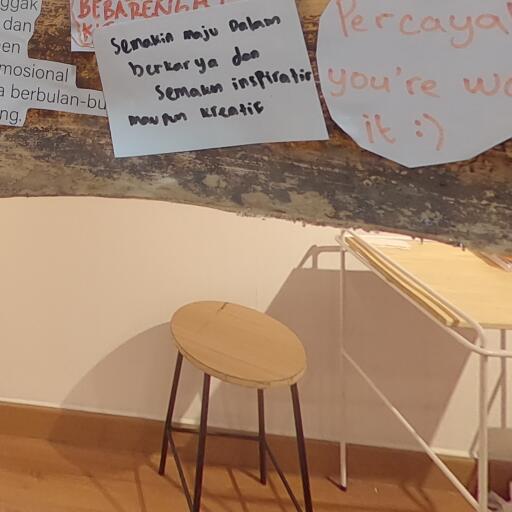 dan
mosional
berbulan-bu
BEBARENGAN
Semakin maju Dalam
berkarya dan
Semakin inspiratif
maupun kreatif
Percaya
you're wo
it :)